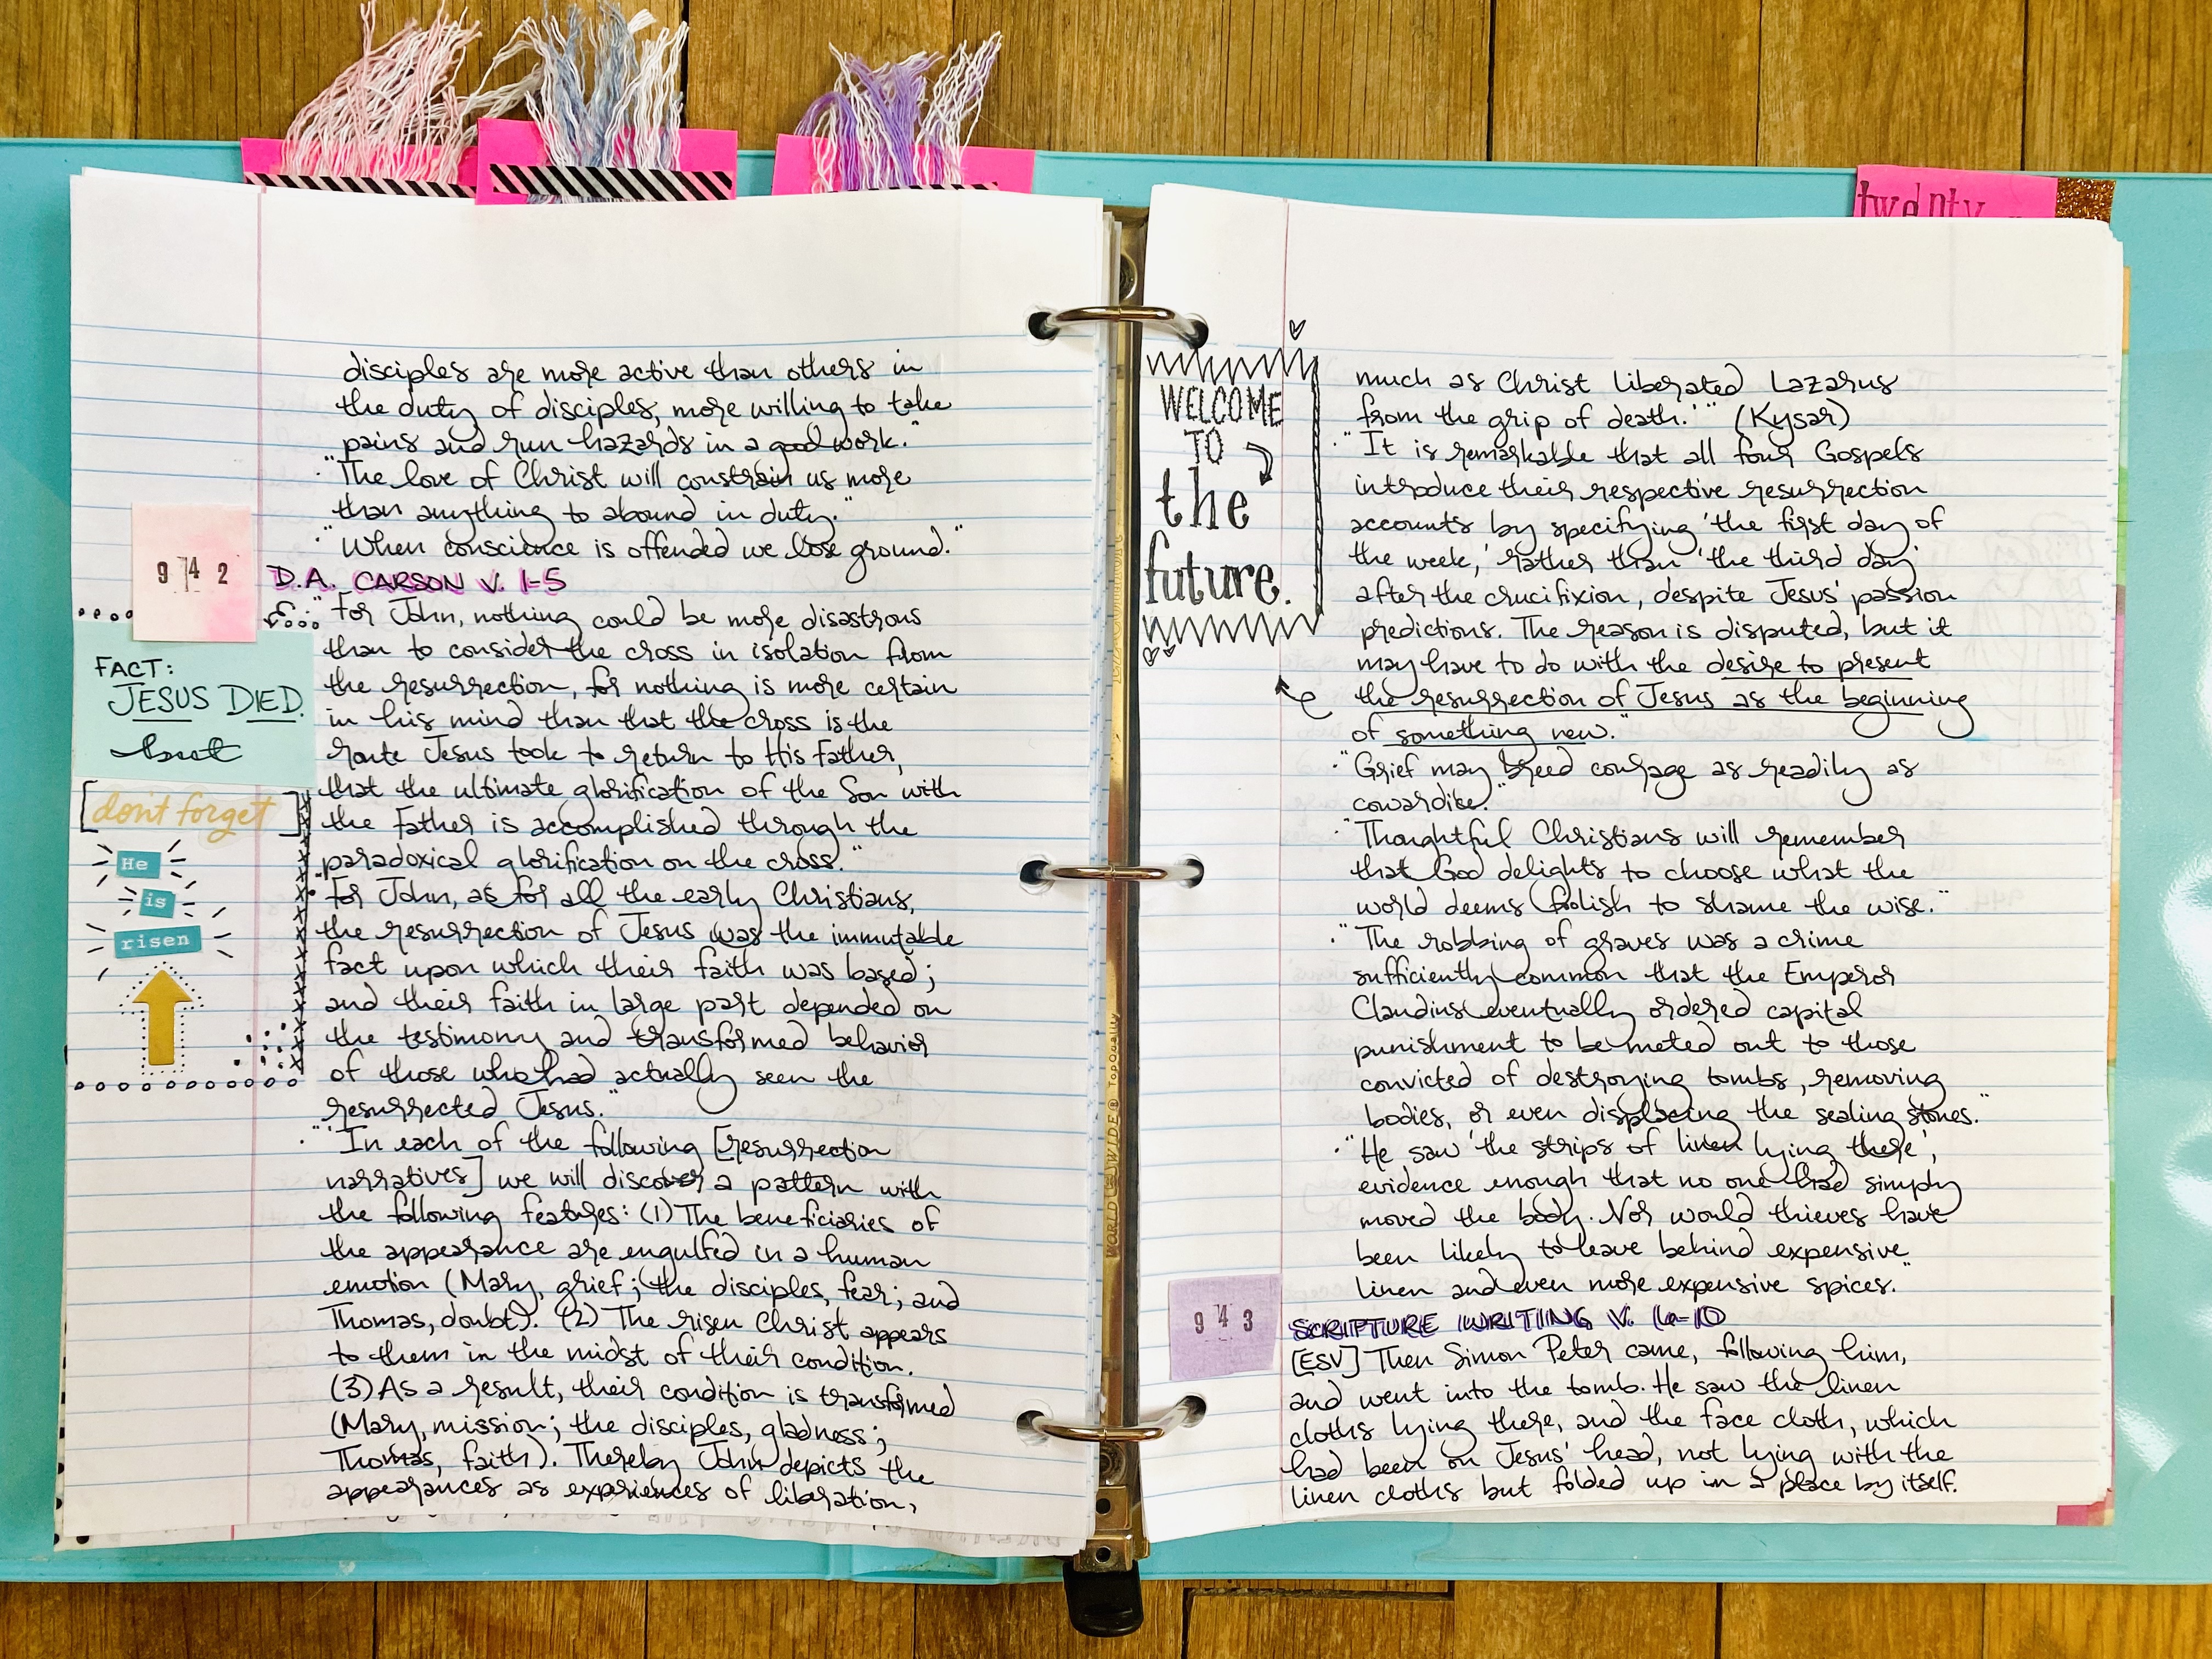 twenty
disciples are more active than others in
the duty of disciples, more willing to take
pains and run hazards in a good work."
·"The love of Christ will constrain us more
than anything to abound in duty."
·"When conscience is offended we lose ground."
942
D.A. CARSON V. 1-5
·"For John, nothing could be more disastrous
than to consider the cross in isolation from
the resurrection, for nothing is more certain
in his mind than that the cross is the
route Jesus took to return to His Father,
that the ultimate glorification of the Son with
the Father is accomplished through the
paradoxical glorification on the cross."
·"For John, as for all the early Christians,
the resurrection of Jesus was the immutable
fact upon which their faith was based;
and their faith in large part depended on
the testimony and transformed behavior
of those who had actually seen the
resurrected Jesus."
·"'In each of the following [resurrection
narratives] we will discover a pattern with
the following features: (1) The beneficiaries of
the appearance are engulfed in a human
emotion (Mary, grief; the disciples, fear; and
Thomas, doubt). (2) The risen Christ appears
to them in the midst of their condition.
(3) As a result, their condition is transformed
(Mary, mission; the disciples, gladness;
Thomas, faith). Thereby John depicts the
appearances as experiences of liberation,
FACT:
JESUS DIED.
but
[don't forget]
He
is
risen
WORLD WIDE® Top Quality
WELCOME
TO
the
future.
much as Christ liberated Lazarus
from the grip of death.'" (Kysar)
·"It is remarkable that all four Gospels
introduce their respective resurrection
accounts by specifying 'the first day of
the week,' rather than 'the third day'
after the crucifixion, despite Jesus' passion
predictions. The reason is disputed, but it
may have to do with the desire to present
the resurrection of Jesus as the beginning
of something new."
·"Grief may breed courage as readily as
cowardise."
·"Thoughtful Christians will remember
that God delights to choose what the
world deems foolish to shame the wise."
·"The robbing of graves was a crime
sufficiently common that the Emperor
Claudius eventually ordered capital
punishment to be meted out to those
convicted of destroying tombs, removing
bodies, or even displacing the sealing stones."
·"He saw 'the strips of linen lying there',
evidence enough that no one had simply
moved the body. Nor would thieves have
been likely to leave behind expensive
linen and even more expensive spices."
943
SCRIPTURE WRITING V. 6-10
[ESV] Then Simon Peter came, following him,
and went into the tomb. He saw the linen
cloths lying there, and the face cloth, which
had been on Jesus' head, not lying with the
linen cloths but folded up in a place by itself.